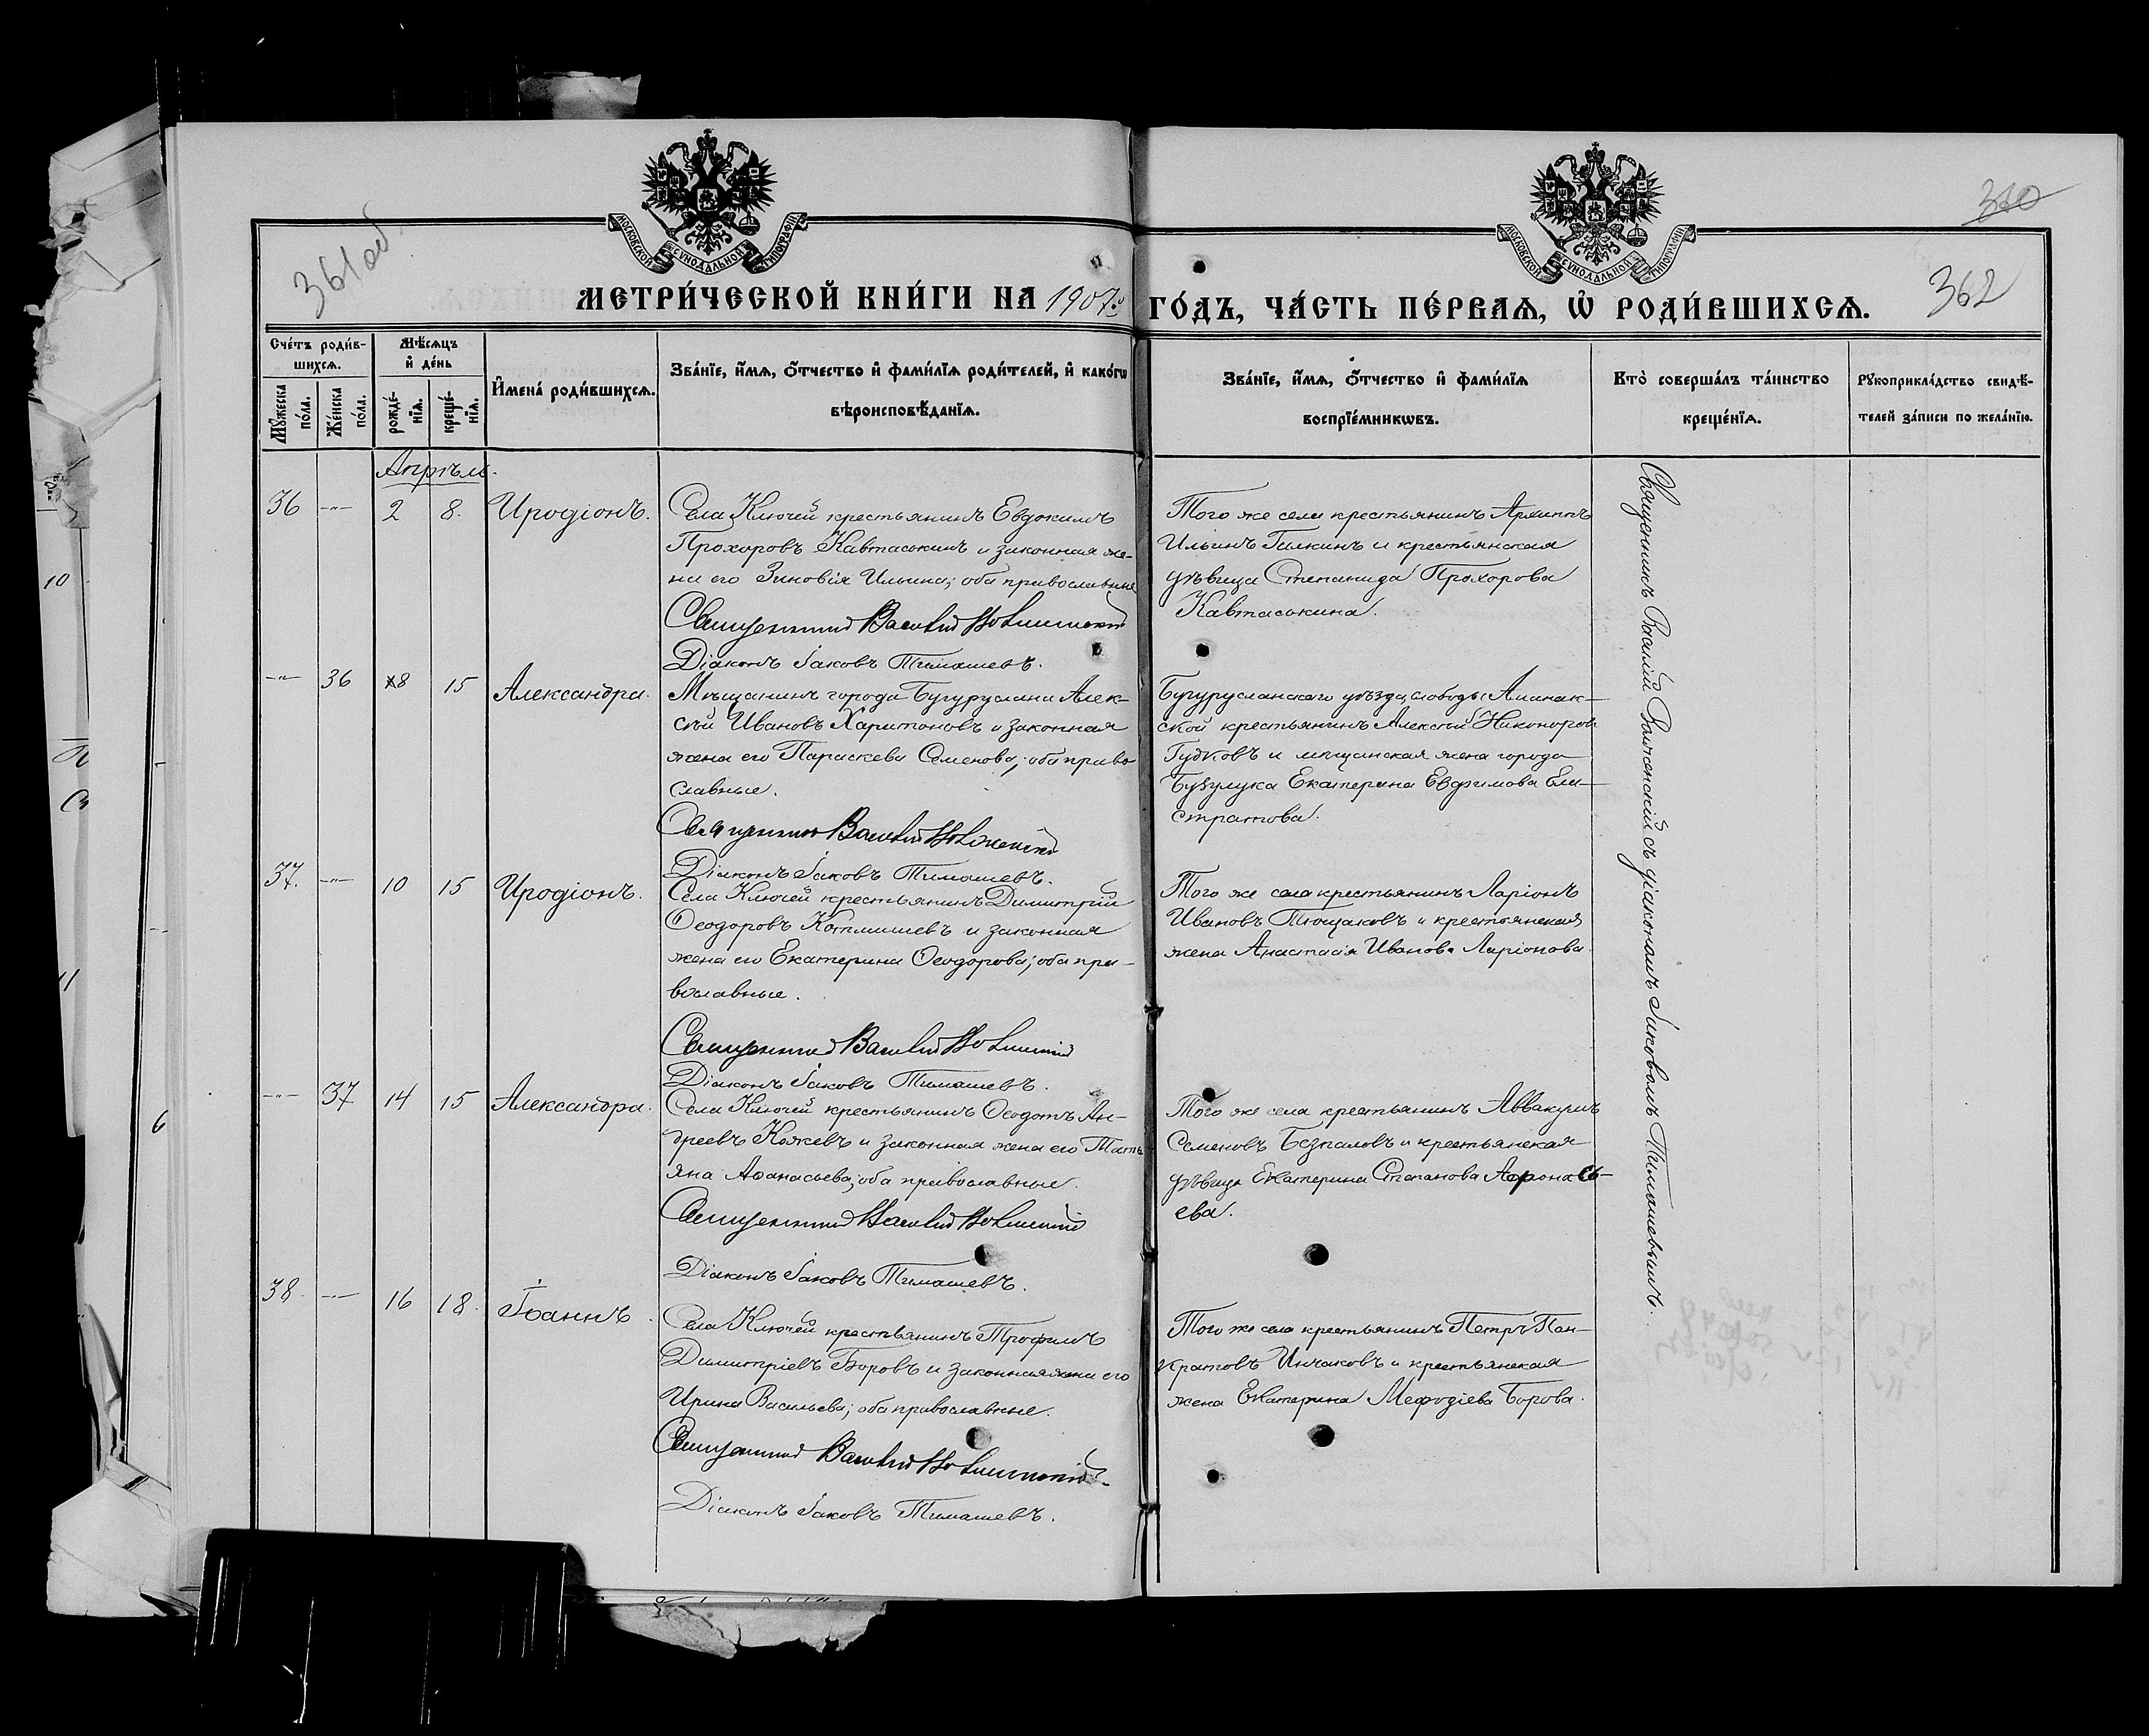 361 об
310
362
МОСКОВСКОЙ СѴНОДАЛЬНОЙ ТИПОГРАФІИ
МОСКОВСКОЙ СѴНОДАЛЬНОЙ ТИПОГРАФІИ
МЕТРИ́ЧЕСКОЙ КНИ́ГИ НА 1907й ГО́ДЪ, ЧА́СТЬ ПЕ́РВАѦ, Ѡ҆ РОДИ́ВШИХСѦ.
Сче́тъ роди́в-
шихсѧ.
Мꙋ́жеска по́ла.
Же́нска по́ла.
Мѣ́сѧцъ
и҆ де́нь
рожде́-нїѧ.
креще́-нїѧ.
И҆мена̀ роди́вшихсѧ.
Зва́нїе, и҆́мѧ, ѻ҆́тчество и҆ фами́лїѧ роди́телей, и҆ како́гѡ
вѣроисповѣ́данїѧ.
Зва́нїе, и҆́мѧ, ѻ҆́тчество и҆ фами́лїѧ
воспрїе́мникѡвъ.
Кто̀ соверша́лъ та́инство
креще́нїѧ.
Рꙋкоприкла́дство свидѣ́-
телей за́писи по жела́нїю.
Апрѣль.
36 -„- 2 8. Иродіонъ.
Села Ключей крестьянинъ Евдокимъ
Прохоровъ Кавтаськинъ и законная же-
на его Зиновія Ильина; оба православные
Священникъ Василій
Діаконъ Іаковъ Тимашевъ.
Того же села крестьянинъ Архиппъ
Ильинъ Гилкинъ и крестьянская
дѣвица Степанида Прохорова
Кавтаськина.
Священникъ Василій съ діакономъ Іаковомъ Тимашевымъ.
-„- 36 8 15 Александра.
Мѣщанинъ города Бугуруслана Алек-
сѣй Ивановъ Харитоновъ и законная
жена его Параскева Семенова; оба право-
славные.
Священникъ Василій
Діаконъ Іаковъ Тимашевъ.
Бугурусланскаго уѣзда, слободы Аманак-
ской крестьянинъ Алексѣй Никоноровъ
Гудковъ и мѣщанская жена города
Бузулука Екатерина Евфимова Ели-
стратова.
37. -„- 10 15 Иродіонъ.
Села Ключей крестьянинъ Димитрій
Ѳеодоровъ и законная
жена его Екатерина Ѳеодорова; оба пра-
вославные.
Священникъ Василій
Діаконъ Іаковъ Тимашевъ.
Того же села крестьянинъ Ларіонъ
Ивановъ и крестьянская
жена Анастасія Иванова Ларіонова.
-„- 37 14 15 Александра.
Села Ключей крестьянинъ Ѳеодотъ Ан-
дреевъ Кожевъ и законная жена его Тать-
яна Аѳанасьева; оба православные.
Священникъ Василій
Діаконъ Іаковъ Тимашевъ.
Того же села крестьянинъ Аввакумъ
Семеновъ Безпаловъ и крестьянская
дѣвица Екатерина Степанова
ева.
38. -„- 16 18. Іоаннъ.
Села Ключей крестьянинъ Трофимъ
Димитріевъ Боровъ и законная жена его
Ирина Васильева; оба православные.
Священникъ Василій
Діаконъ Іаковъ Тимашевъ.
Того же села крестьянинъ Петръ Пан-
кратовъ Инчаковъ и крестьянская
жена Екатерина Мефодіева Борова.
10
11
6